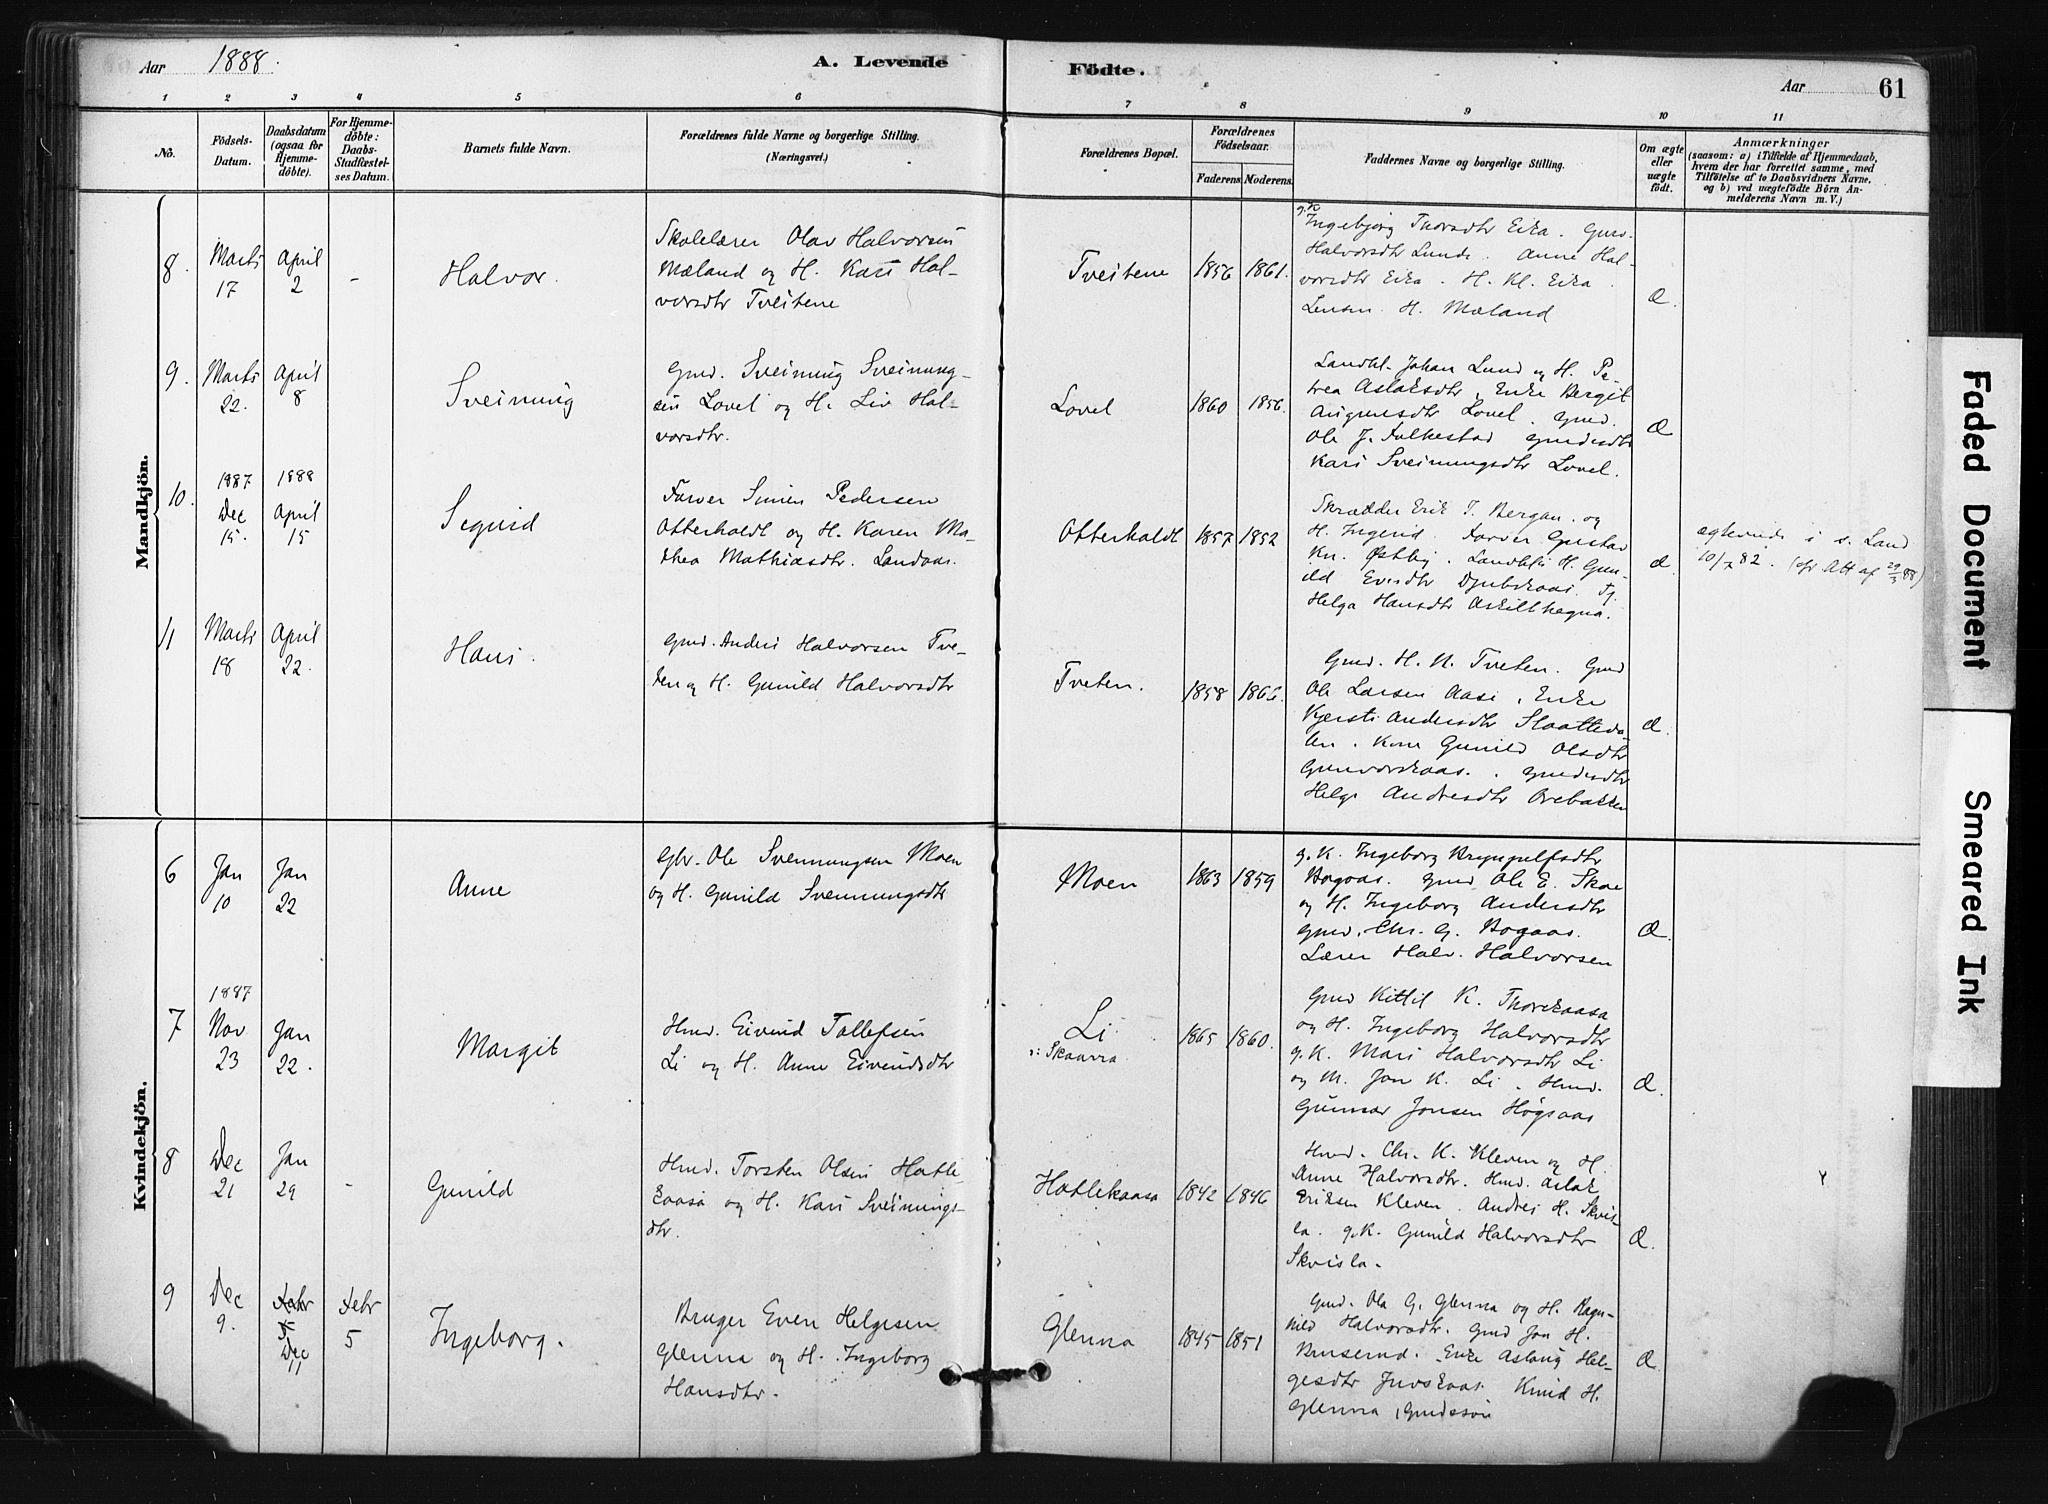 Aar 1888.
A. Levende Födte.
Aar 61
1 2 3 4 5 6 7 8 9 10 11
No.
Födsels-Datum.
Daabsdatum (ogsaa for Hjemme-döbte).
For Hjemme-döbte: Daabs-Stadfæstel-ses Datum.
Barnets fulde Navn.
Forældrenes fulde Navne og borgerlige Stilling.
(Næringsvei.)
Forældrenes Bopæl.
Forældrenes Födselsaar.
Faderens. Moderens.
Faddernes Navne og borgerlige Stilling.
Om ægte eller uægte födt.
Anmærkninger
(saasom: a) i Tilfælde af Hjemmedaab,
hvem der har forrettet samme, med
Tilföielse af to Daabsvidners Navne,
og b) ved uægtefödte Börn An-
melderens Navn m. V.)
Mandkjön.
8. Marts 17 April 2 -
Halvor.
Skolelærer Olav Halvorsen
Mæland og H. Kari Hal-
vorsdtr Tveitene
Tveitene 1856 1861.
g. K. Ingebjørg Thorsdtr Eika. Gunv.
Halvorsdtr Lunde. Anne Hal-
vorsdtr Eika. H. Kl. Eika.
H. Mæland
Æ.
9. Marts 22. April 8
Sveinung
Gmd. Sveinung Sveinung-
sen Lovel og H. Liv Hal-
vorsdtr.
Lovel 1860 1856.
Landhl. Johan Lund og H. Pe-
trea Aslaksdtr, Enke Bergit
Lovel. gmd.
Ole J. Folkestad gmdsdtr
Kari Sveinungsdtr Lovel.
Æ
10. 1887 Dec 15. 1888 April 15
Sigurd
Farver Simen Pedersen
Otterholdt og H. Karen Ma-
thea Mathiasdtr. Landaas.
Otterholdt 1857 1852
Skrædder Erik T. Bergan. og
H. Ingerid. Farver Gustav
Kn. Østby. Landhl. H. Gun-
ild Evisdtr Djubskaas. Tj.
Helga Hansdtr Askilthegna.
Æ.
ægteviede i s. Land
10/7 82. (cfr Att af 29/3 88)
11 Marts 18 April 22.
Hans.
Gmd. Anders Halvorsen Tve-
ten og H. Gunild Halvorsdtr
Tveten. 1858 1866.
Gmd. H. N. Tveten. Gmd
Ole Larsen Aase, Enke
Kjersti Andersdtr Slaatteda-
len. Kone Gunild Olsdtr
Gunvorskaas. gmdsdtr
Helge Andersdtr Orebakken
Æ.
Kvindekjön.
6 Jan 10 Jan 22
Anne
Gbr. Ole Svennungsen Moen
og H. Gunild Svennungsdtr
Moen 1863 1859
g. K. Ingeborg Brynjulfsdtr
Bogaas. Gmd Ole E. Skoe
og H. Ingeborg Andersdtr
gmd. Chr. G. Bogaas.
Lærer Halv. Halvorsen
Æ.
7 1887 Nov 23 Jan 22.
Margit
Hmd. Eivind Tollefsen
Li og H. Anne Eivindsdtr
Li
Skaarra 1865 1860.
Gmd Kittil K. Thorekaasa
og H. Ingeborg Halvorsdtr
g. K. Mari Halvorsdtr Li
og M. Jon K. Li. Hmd.
Gunnar Jonsen Høgsaas
Æ.
8 Dec 21 Jan 29 -
Gunild
Hmd. Torsten Olsen Hatle
kaasa og H. Kari Sveinungs-
dtr.
Hatlekaasa 1842 1846
Hmd. Chr. K. Kleven og H.
Anne Halvorsdtr. Hmd. Aslak
Eriksen Kleven. Andres H. Skvis-
la. g. K. Gunild Halvorsdtr
Skvisla.
Æ.
9 Dec 9. Febr 5 Dec 11 Febr 5
Ingeborg.
Bruger Even Helgesen
Glenna og H. Ingeborg
Hansdtr.
Glenna 1845 1851
Gmd. Ola G. Glenna og H. Ragn-
hild Halvorsdtr. Gmd Jon H.
Bruserud. Enke Aslaug Hel-
gesdtr Juvskaas. Knud H.
Glenna, Gmdssøn
Æ.
Faded Document
Smeared Ink